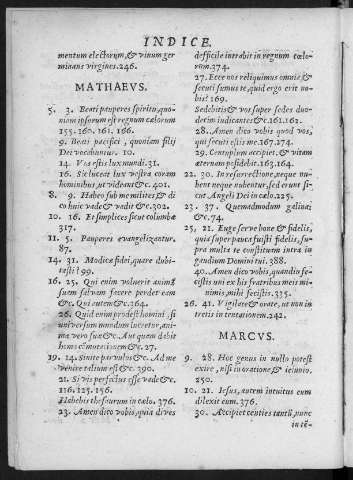 INDICE.
mentum electorum, & vinum ger
minans virgines. 246.
MATHAEVS.
5. 3. Beati pauperes spiritu, quo-
niam ipsorum est regnum cælorum
155. 160. 161. 166.
9. Beati pacifici, quoniam filij
Dei vocabuntur. 10.
14. Vos estis lux mundi. 31.
16. Sic luceat lux vestra coram
hominibus, ut videant &c. 401.
8. 9. Habeo sub me milites, & di
co huic vade & vadit &c. 302.
10. 16. Et simplices sicut columbæ
317.
11. 5. Pauperes evangelizantur.
87.
14. 31. Modicæ fidei, quare dubi-
tasti? 99.
16. 25. Qui enim voluerit animã
suam salvam facere perdet eam
&c. Qui autem &c. 364.
26. Quid enim prodest homini, si
universum mundum lucretur, ani-
mæ vero suæ &c. Aut quam dabit
homo commutationem &c. 27.
19. 14. Sinite parvulos &c. Ad me
venire talium est &c. 390.
21. Si vis perfectus esse vade &c.
116. 125. 156.
Habebis thesaurum in cælo. 376.
23. Amen dico vobis, quia dives
difficile intrabit in regnum cælo-
rum. 374.
27. Ecce nos reliquimus omnia, &
secuti sumus te, quid ergo erit no-
bis? 169.
Sedebitis & vos super sedes duo-
decim iudicantes &c. 161. 163.
28. Amen dico vobis quod vos,
qui secuti estis me. 167. 274.
29. Centuplum accipiet, & vitam
æternam possidebit. 163. 164.
22. 30. In resurrectione, neque nu-
bent neque nubentur, sed erunt si-
cut Angeli Dei in cælo. 225.
23. 37. Quemadmodum gallina
&c. 74.
25. 21. Euge serve bone & fidelis,
quia super pauca fuisti fidelis, su-
pra multa te constituam intra in
gaudium Domini tui. 388.
40. Amen dico vobis, quandiu fe-
cistis uni ex his fratribus meis mi-
nimis, mihi fecistis. 335.
26. 41. Vigilate & orate, ut non in
tretis in tentationem. 242.
MARCVS.
9. 28. Hoc genus in nullo potest
exire, nisi in oratione, & ieiunio.
250.
10. 21. Iesus, autem intuitus eum
dilexit eum. 376.
30. Accipiet centies tantũ, nunc
in tẽ-